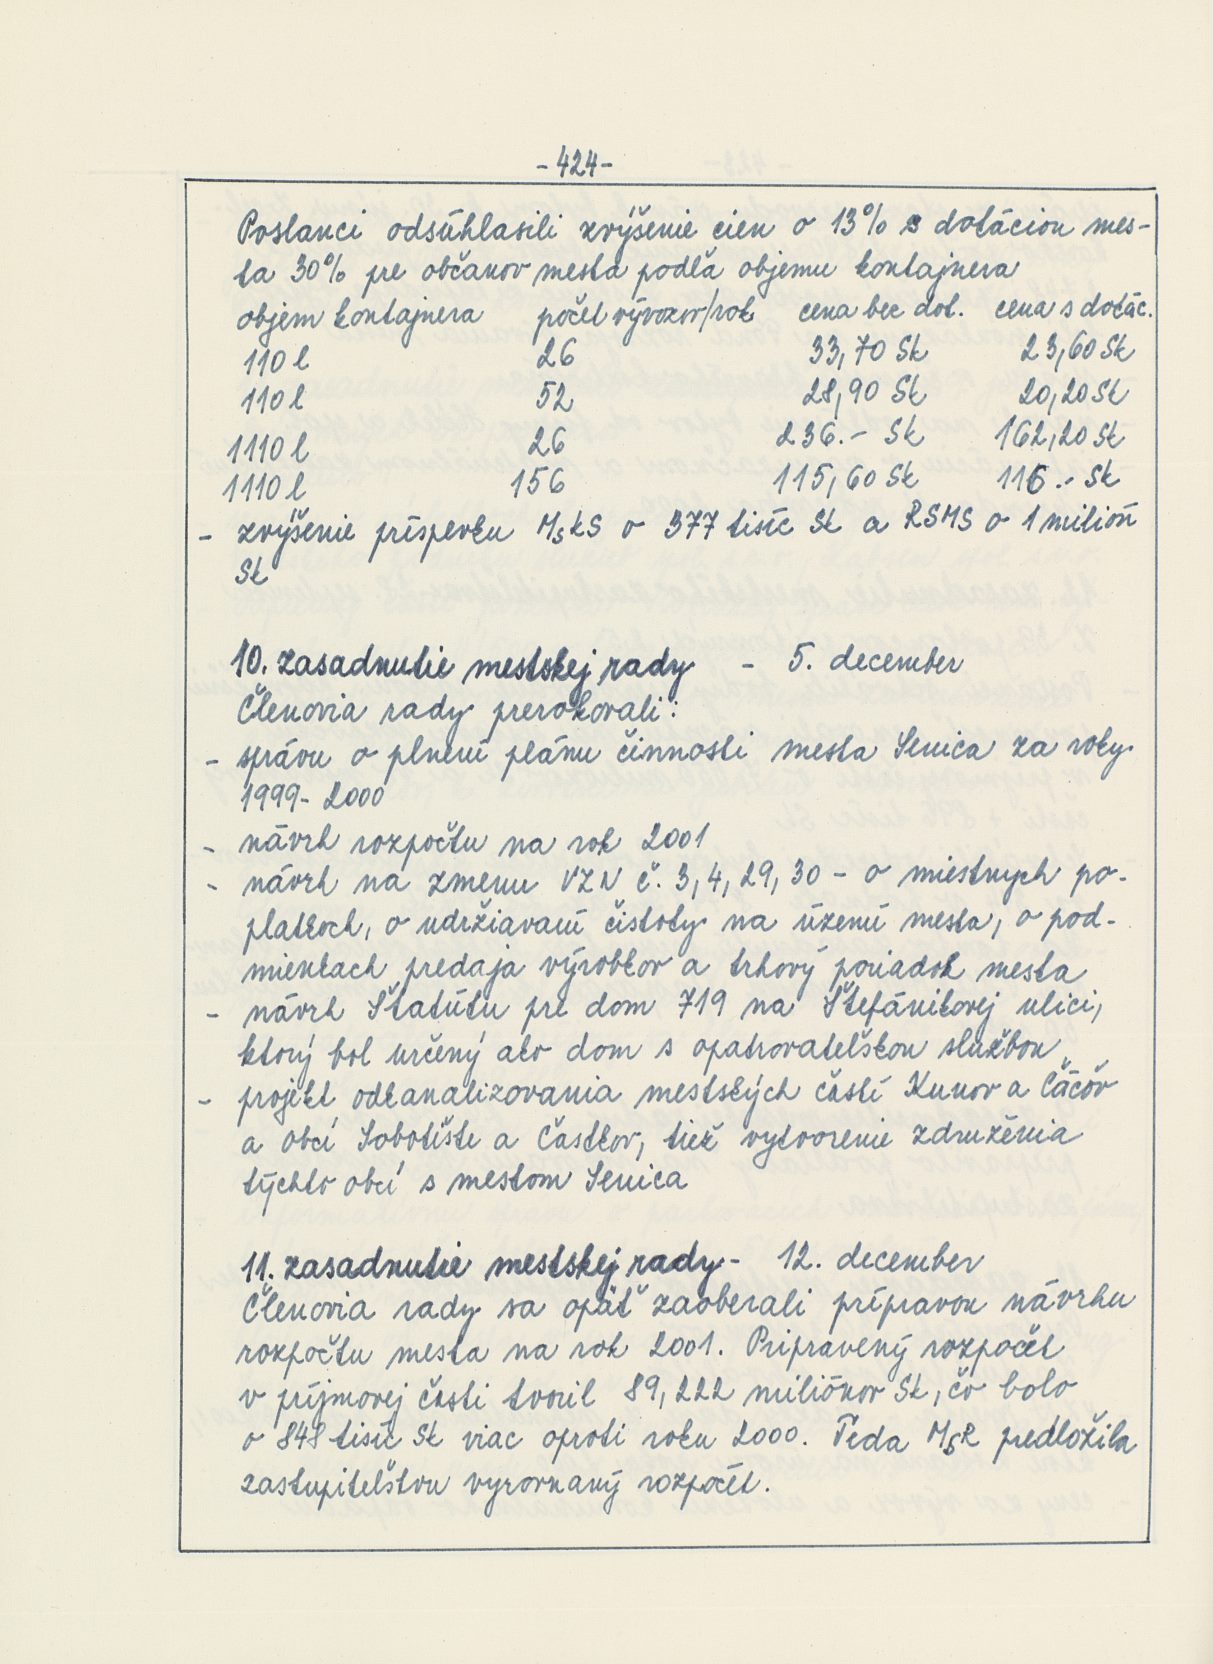 -424-
Poslanci odsúhlasili zvýšenie cien o 13% s dotáciou mes-
ta 30% pre občanov mesta podľa objemu kontajnera
objem kontajnera počet vývozov/rok cena bez dot. cena s dotác.
110 l 26 33,70 Sk 23,60 Sk
110 l 52 28,90 Sk 20,20 Sk
1110 l 26 236.- Sk 162,20 Sk
1110 l 156 115,60 Sk 116.- Sk
- zvýšenie príspevku MsKS o 377 tisíc Sk a RSMS o 1 milión
Sk
10. zasadnutie mestskej rady - 5. december
Členovia rady prerokovali:
- správu o plnení plánu činnosti mesta Senica za roky
1999-2000
- návrh rozpočtu na rok 2001
- návrh na zmenu VZN č. 3, 4, 29, 30 - o miestnych po-
platkoch, o udržiavaní čistoty na území mesta, o pod-
mienkach predaja výrobkov a trhový poriadok mesta
- návrh Štatútu pre dom 719 na Štefánikovej ulici,
ktorý bol určený ako dom s opatrovateľskou službou
- projekt odkanalizovania mestských častí Kunov a Čáčov
a obcí Sobotište a Častkov, tiež vytvorenie združenia
týchto obcí s mestom Senica
11. zasadnutie mestskej rady - 12. december
Členovia rady sa opäť zaoberali prípravou návrhu
rozpočtu mesta na rok 2001. Pripravený rozpočet
v príjmovej časti tvoril 89,222 miliónov Sk, čo bolo
o 848 tisíc Sk viac oproti roku 2000. Teda MsR predložila
zastupiteľstvu vyrovnaný rozpočet.